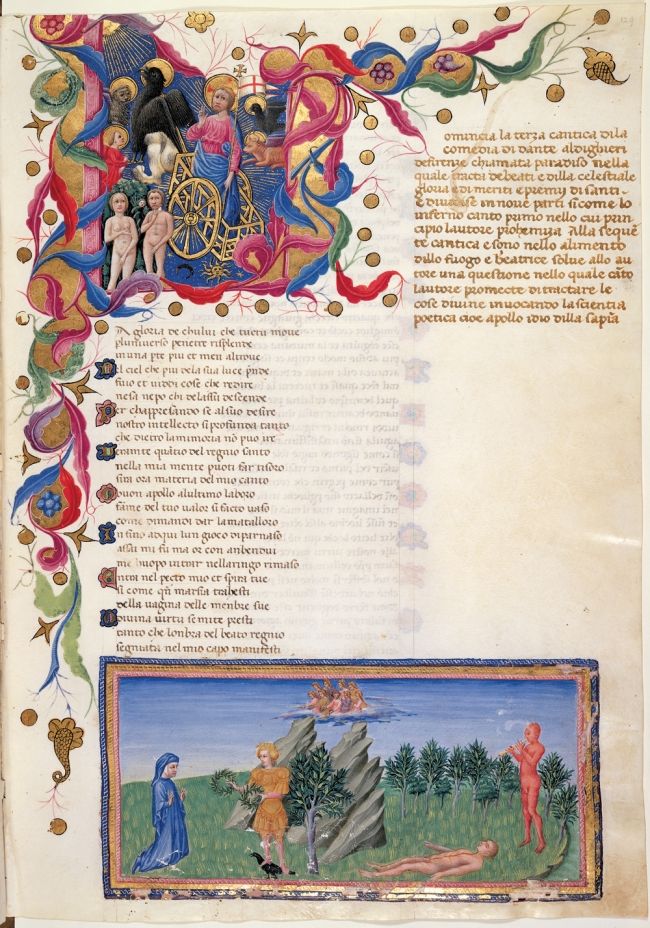 129
omincia la terza cantica di la
comedia di dante aldighieri
defirenze chiamata paradiso nella
quale tracta debeati e dilla celestiale
gloria e di meriti e premij di santi
e divisesi in nove parti si come lo
inferno canto primo nello cui prin
capio lautore prohemiza Alla seque
te cantica e sono nello alimento
dillo fuogo e beatrice solve allo au
tore una questione nello quale cato
lautore promecte di tractare le
cose divine invocando la scientia
poetica cioe apollo idio dilla sapia
A gloria de chului che tucto move
pluniverso penetre risplende
in una pte piu et meu altrove
el ciel che piu dela sua luce pnde
fuio et viddi cose che redire
ne sa ne po chi delassu descende
er chappresando se al suo desire
nostro intellecto si profunda tanto
che dietro la mimoria no puo ire
eramte quatio del regnio santo
nella mia mente puoti far tisoro
sira ora materia del mio canto
buon apollo alultimo laboro
fame del tuo valor si facto vaso
come dimandi dar lamatalloro
n fino adqui lun gioco di parnaso
assai mi fu ma or con anbendui
me huopo intrar nellaringo rimaso
ntra nel pecto mio et spira tue
si come qn marsia trahesti
della vagina delle menbre sue
divina virtu se mite presti
tanto che lonbra del beato regnio
segniata nel mio capo manifesti